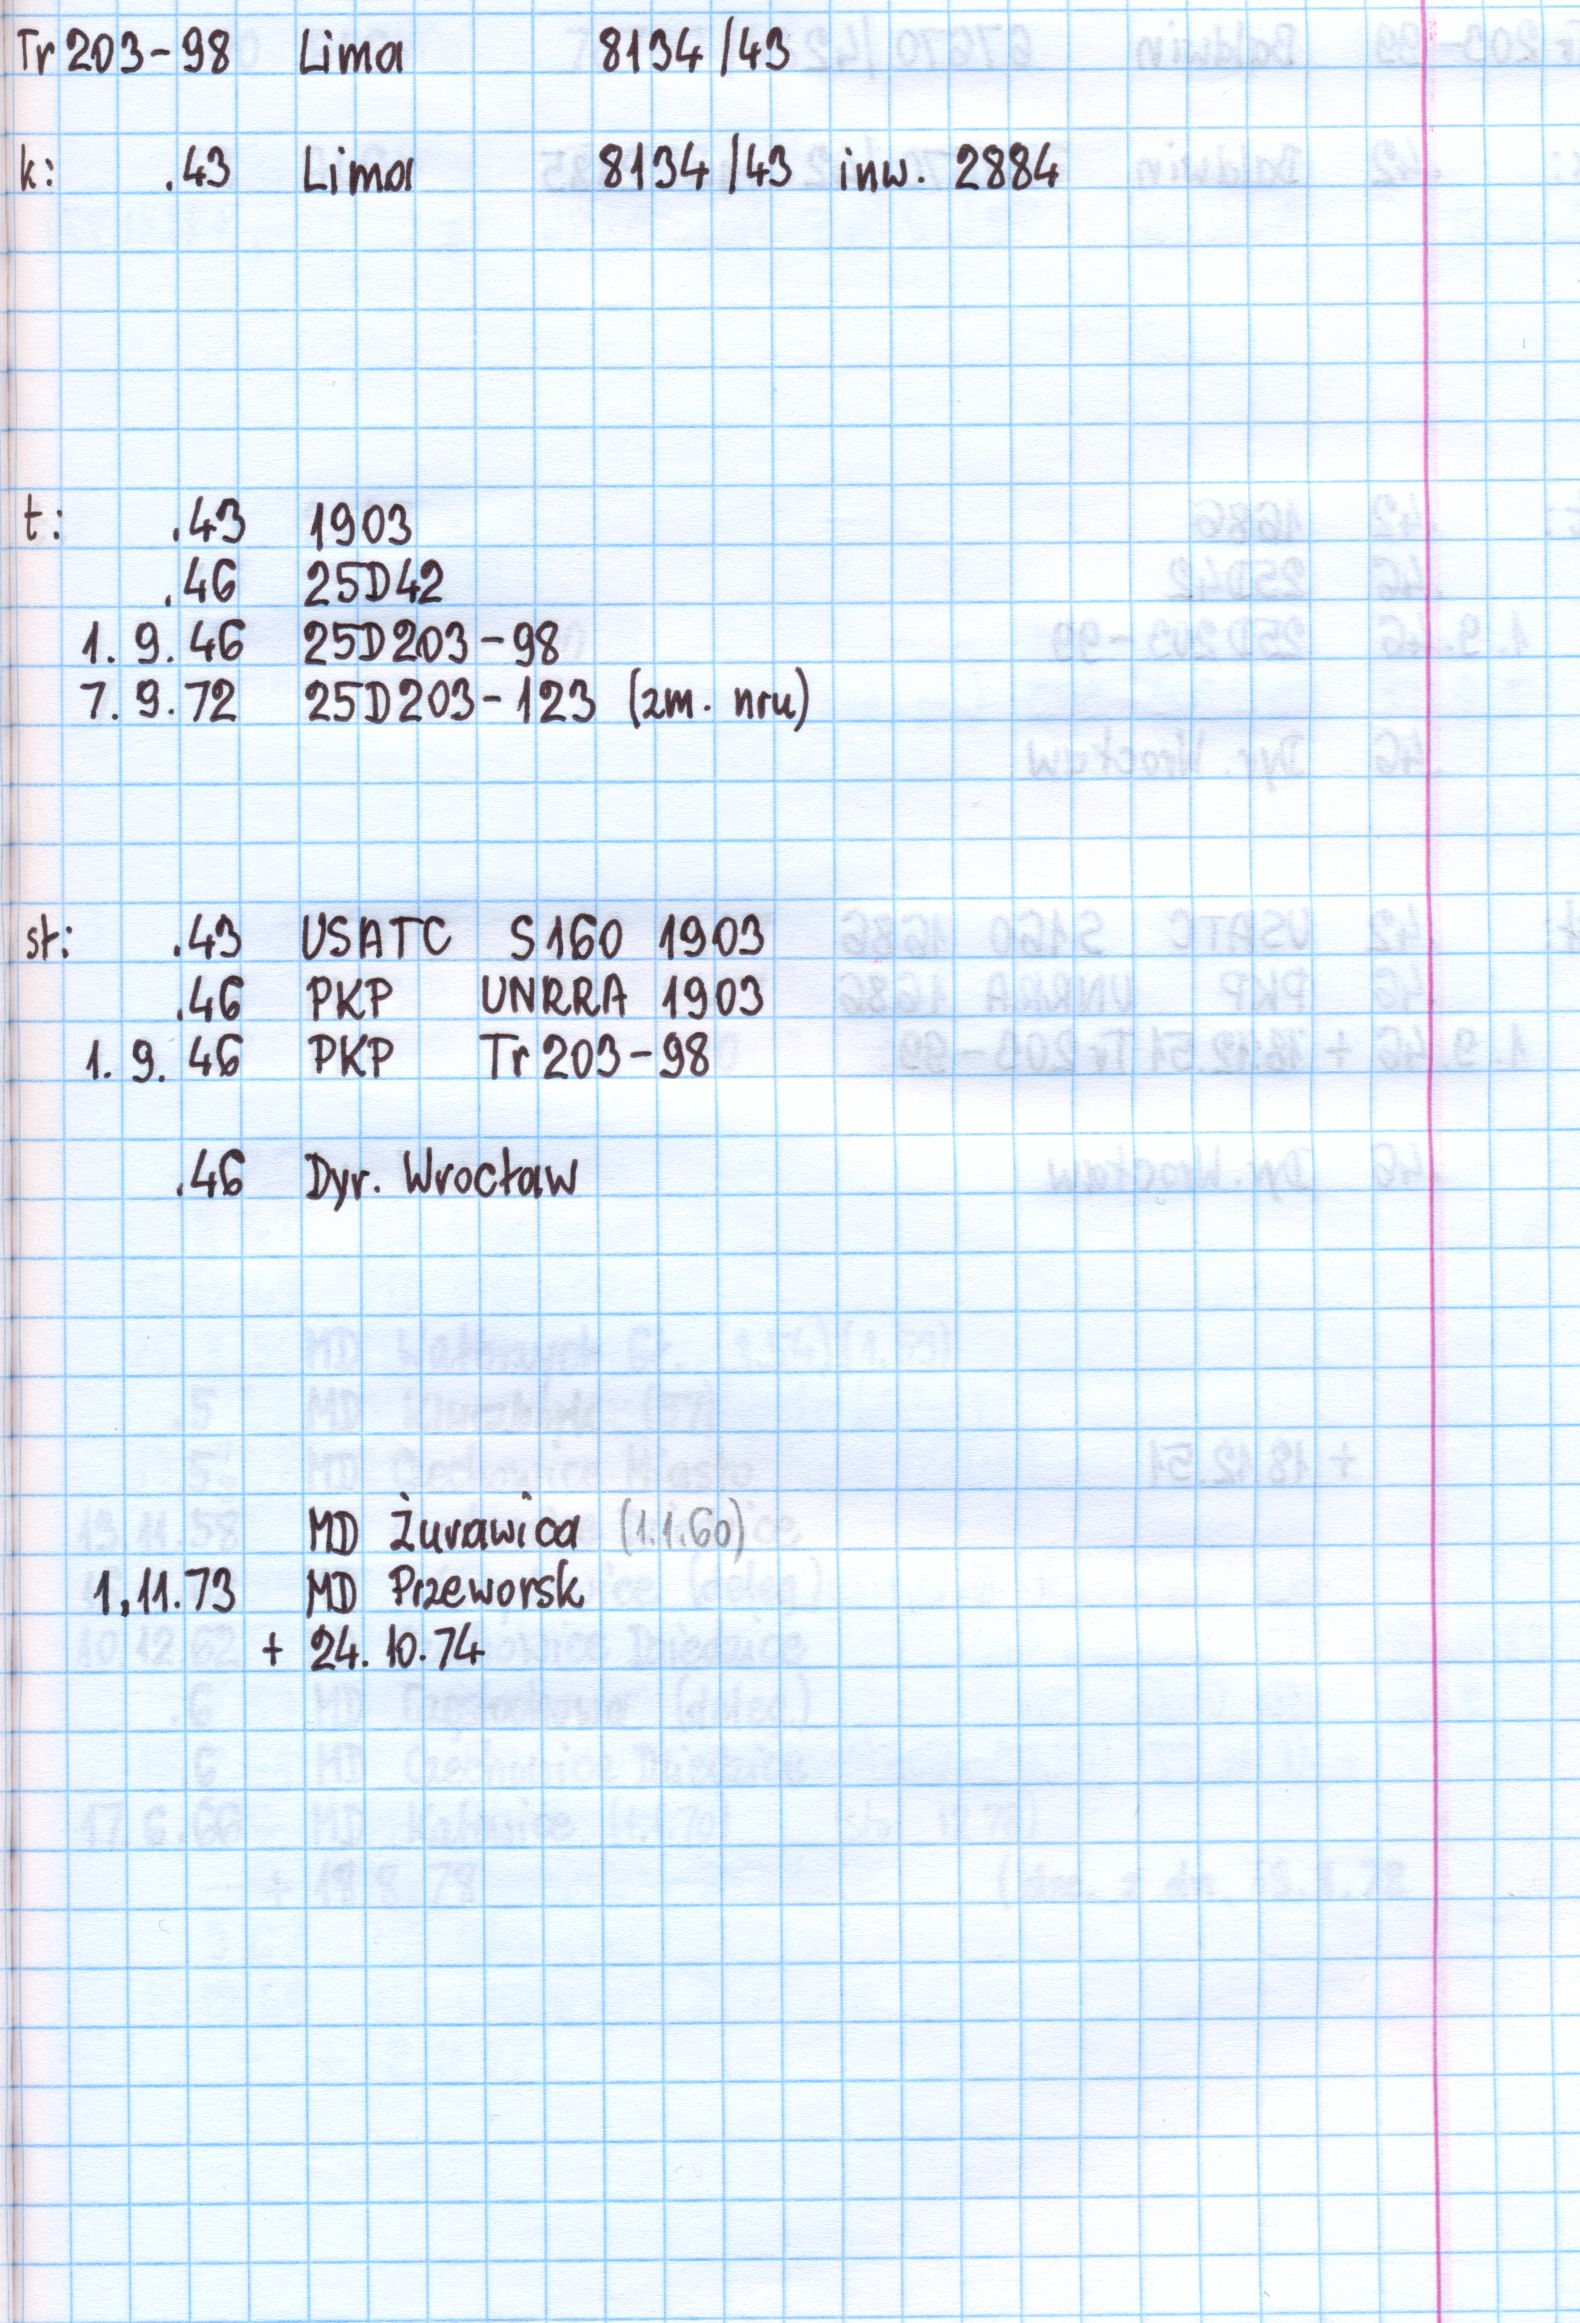 Tr 203-98 Lima 8134/43
k: .43 Lima 8134/43 inw. 2884
t: .43 1903
.46 25D42
1. 9. 46 25D203-98
7. 9. 72 25D203-123 (zm. nru)
st: .43 USATC S160 1903
.46 PKP UNRRA 1903
1. 9. 46 PKP Tr 203-98
.46 Dyr. Wrocław
MD Żurawica (1.1.60)
1.11.73 MD Przeworsk
+ 24. 10. 74